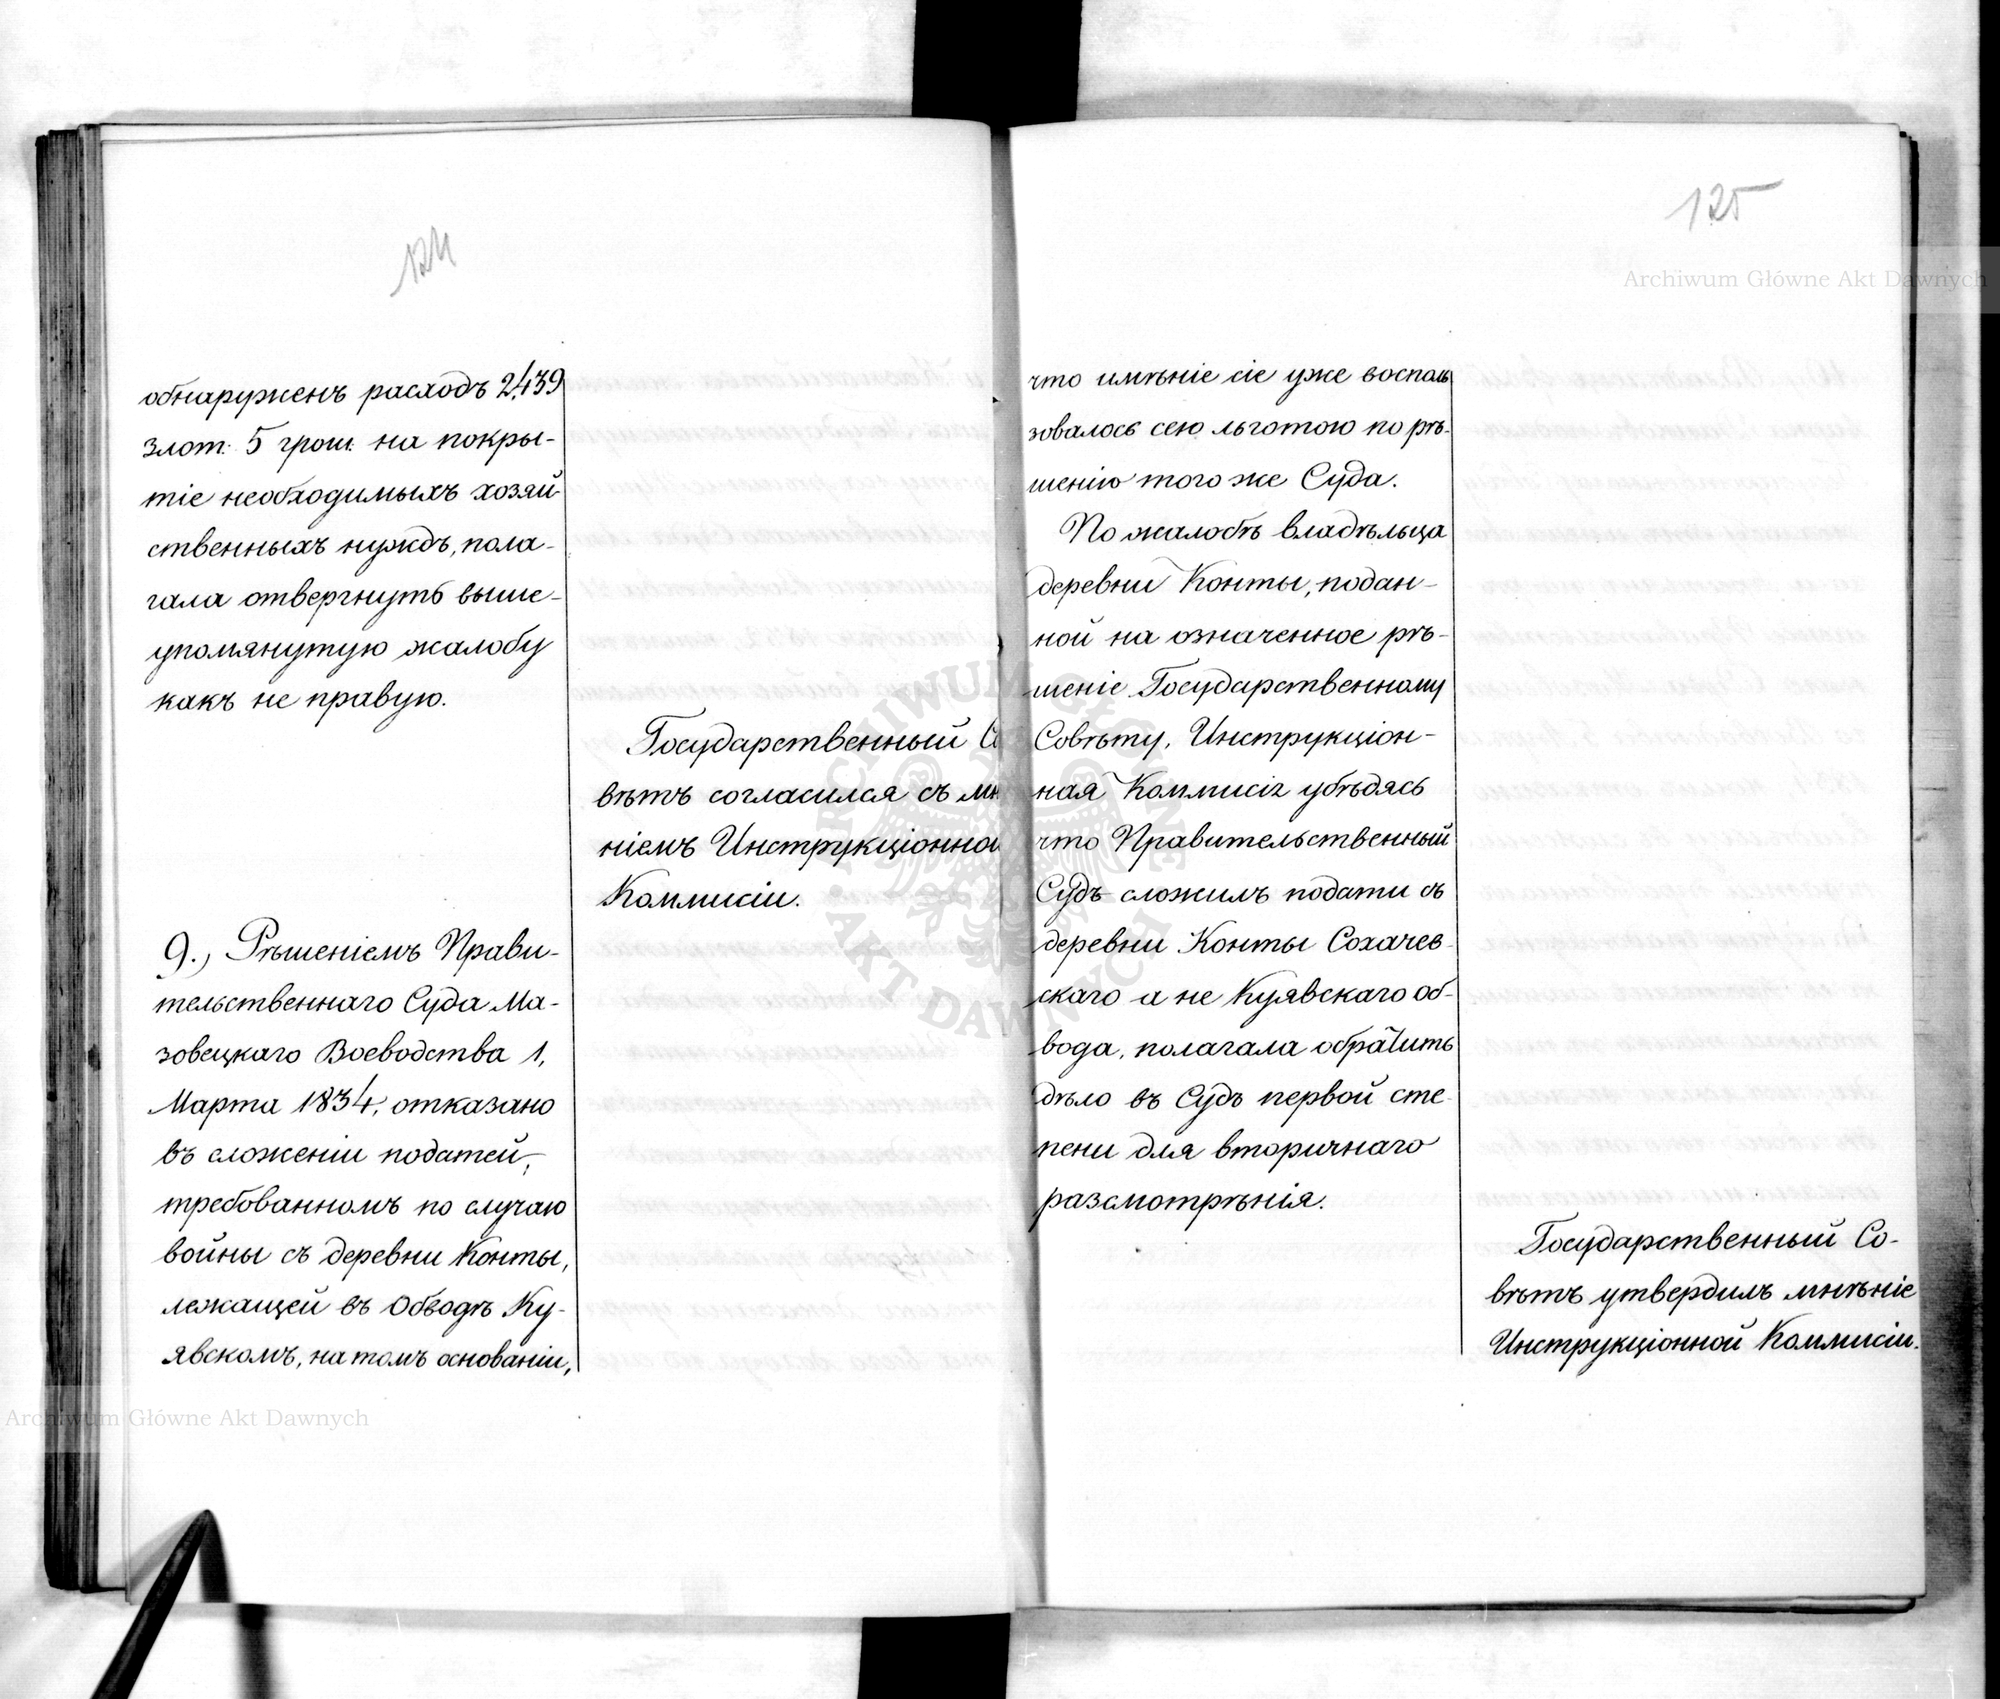 124
обнаруженъ расходъ 2,439
злот: 5 грош: на покры-
тіе необходимыхъ хозяй-
ственныхъ нуждъ, пола-
гала отвергнуть выше-
упомянутую жалобу
какъ не правую.
Государственный Со
вѣтъ согласился съ мнѣ
ніемъ Инструкціонной
Коммисіи.
9., Рѣшеніемъ Прави-
тельственнаго Суда Ма-
зовецкаго Воеводства 1,
Марта 1834, отказано
въ сложеніи податей,
требованномъ по случаю
войны съ деревни Конты,
лежащей въ Обводѣ Ку-
явскомъ, на томъ основаніи,
125
что имѣніе сіе уже восполь
зовалось сею льготою по рѣ-
шенію того же Суда.
По жалобѣ владѣльца
деревни Конты, подан-
ной на означенное рѣ-
шеніе Государственному
Совѣту, Инструкціон-
ная Коммисія убѣдясь
что Правительственный
Судъ сложилъ подати съ
деревни Конты Сохачев-
скаго а не Куявскаго об-
вода, полагала обратить
дѣло въ Судъ первой сте-
пени для вторичнаго
разсмотрѣнія.
Государственный Со-
вѣтъ утвердилъ мнѣніе
Инструкціонной Коммисіи.
Archiwum Główne Akt Dawnych
Archiwum Główne Akt Dawnych
ARCHIWUM GŁÓWNE AKT DAWNYCH